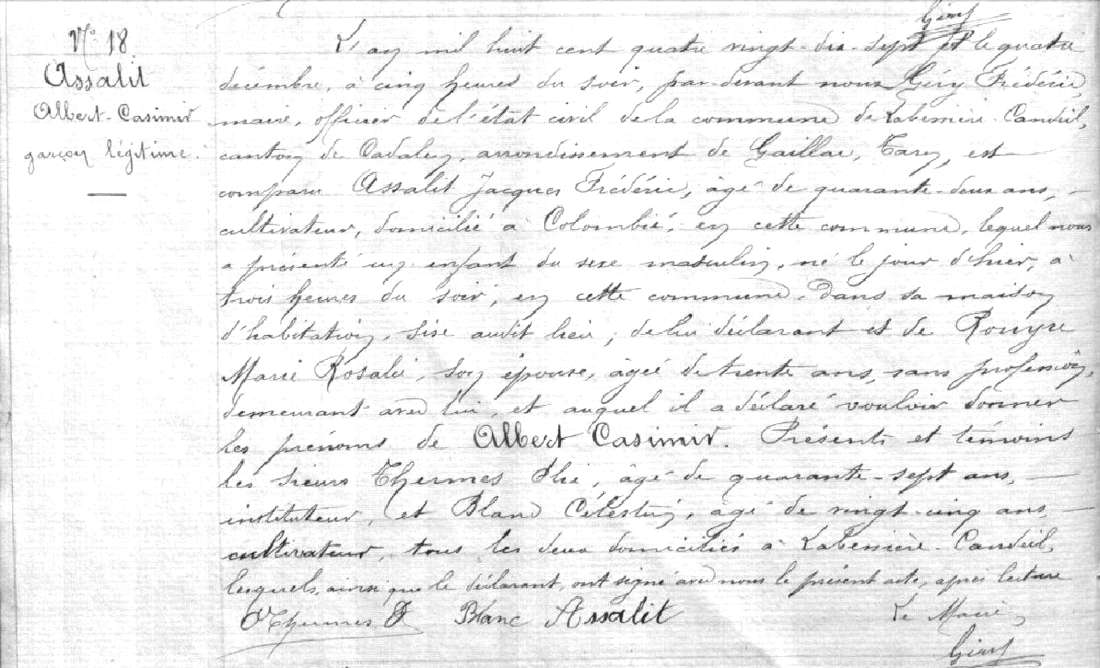 N° 18
Assalit
Albert-Casimir
garçon légitime.
L'an mil huit cent quatre vingt-dix-sept et le quatre
décembre, à cinq heures du soir, par-devant nous Frédéric,
maire, officier de l'état civil de la commune de Labessière-Candeil,
canton de Cadalen, arrondissement de Gaillac, Tarn, est
comparu Assalit Jacques Frédéric, âgé de quarante-deux ans,
cultivateur, domicilié à Colombié, en cette commune, lequel nous
a présenté un enfant du sexe masculin, né le jour d'hier, à
trois heures du soir, en cette commune, dans sa maison
d'habitation, sise audit lieu, de lui déclarant et de Rouyre
Marie Rosalie, son épouse, âgée de trente ans, sans profession,
demeurant avec lui, et auquel il a déclaré vouloir donner
les prénoms de Albert Casimir. Présents et témoins
les sieurs Thermes Elie, âgé de quarante-sept ans,
instituteur, et Blanc Célestin, âgé de vingt-cinq ans,
cultivateur, tous les deux domiciliés à Labessière-Candeil,
lesquels, ainsi que le déclarant, ont signé avec nous le présent acte, après lecture
Thermes Blanc Assalit Le Maire,